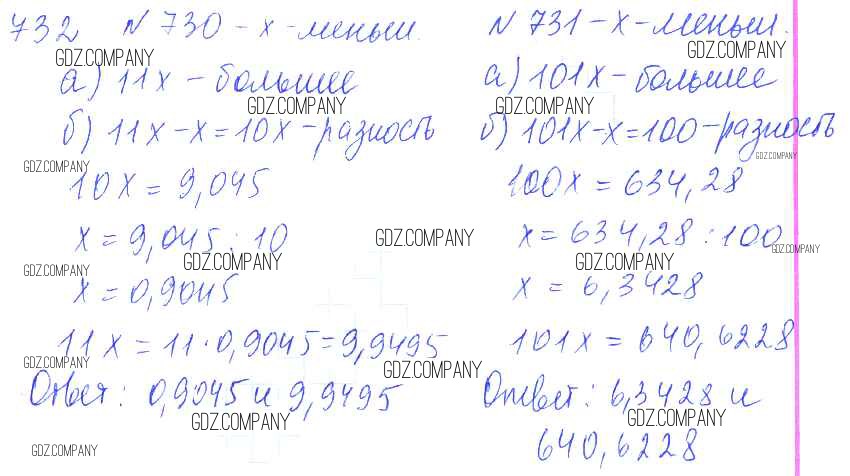 732 N 730 - х - меньш.
а) 11х - большее
б) 11х - х = 10х - разность
10х = 9,045
х = 9,045 : 10
х = 0,9045
11х = 11 · 0,9045 = 9,9495
Ответ: 0,9045 и 9,9495
N 731 - х - меньш.
а) 101х - большее
б) 101х - х = 100 - разность
100х = 634,28
х = 634,28 : 100
х = 6,3428
101х = 640,6228
Ответ: 6,3428 и
640,6228
GDZ.COMPANY
GDZ.COMPANY
GDZ.COMPANY
GDZ.COMPANY
GDZ.COMPANY
GDZ.COMPANY
GDZ.COMPANY
GDZ.COMPANY
GDZ.COMPANY
GDZ.COMPANY
GDZ.COMPANY
GDZ.COMPANY
GDZ.COMPANY
GDZ.COMPANY
GDZ.COMPANY
GDZ.COMPANY
GDZ.COMPANY